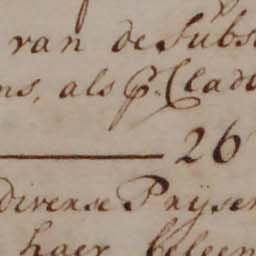 van de Subs
ns, als p.r Clad
26
diverse Prysen
haer beleen